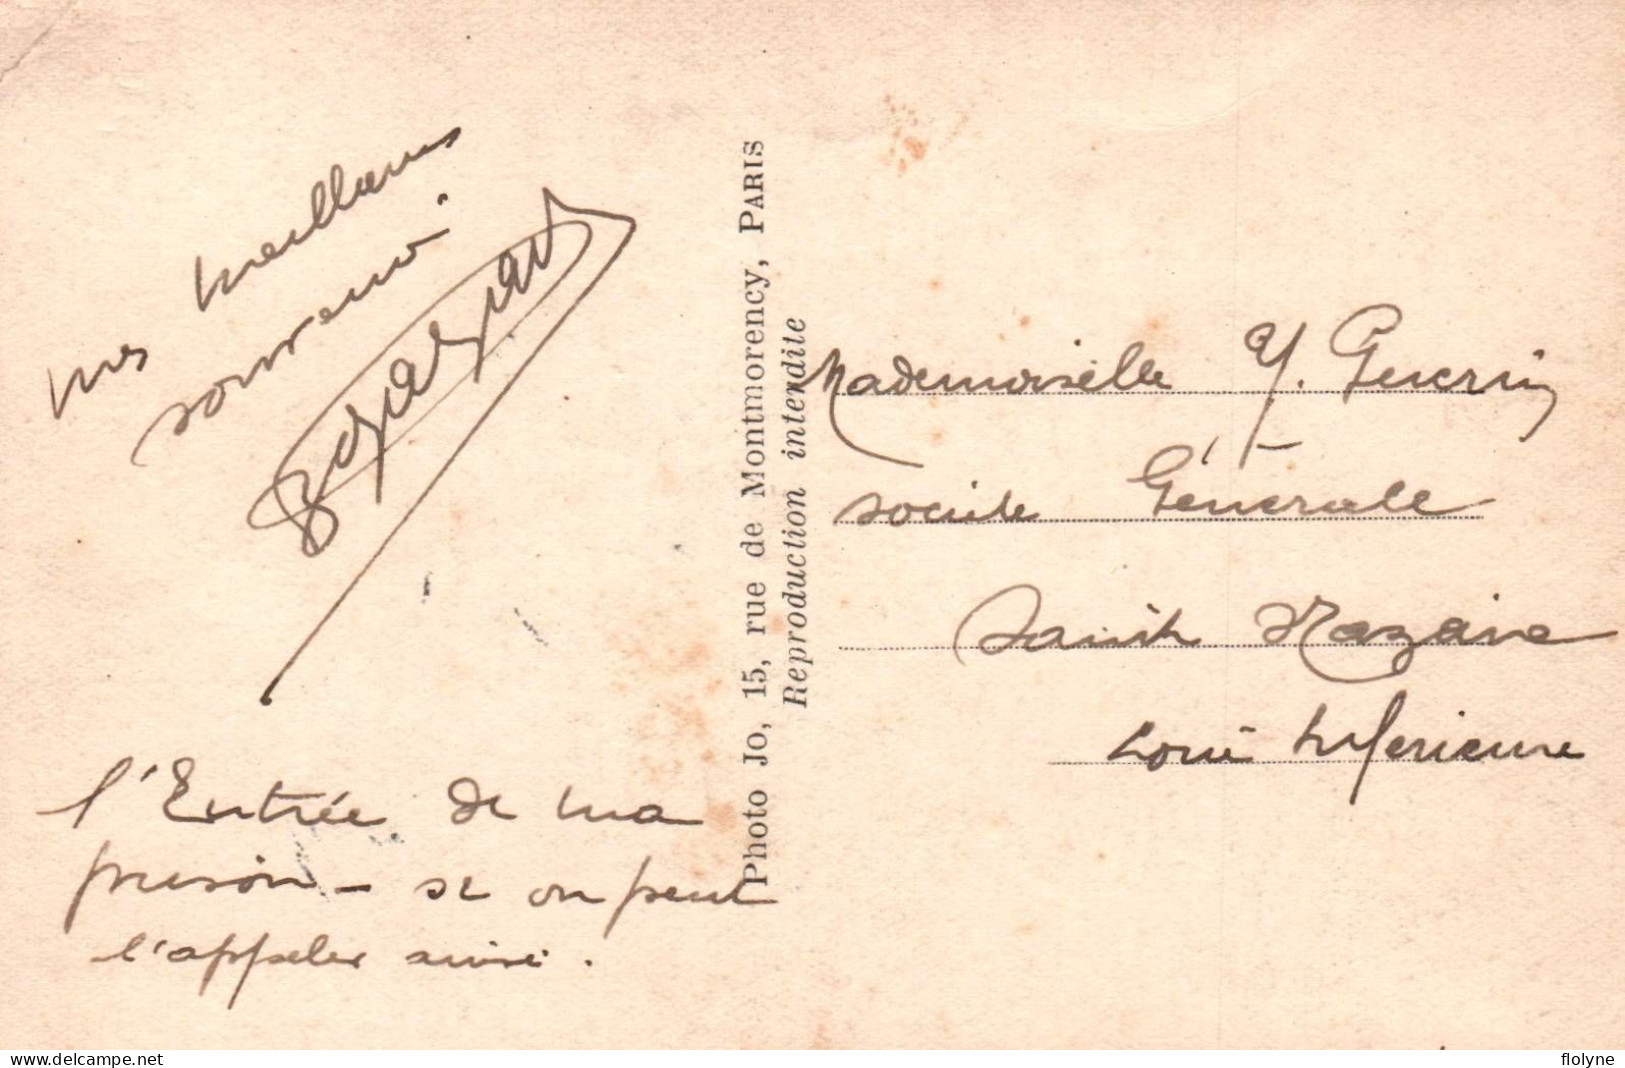 mes meilleurs
souvenirs.
l'Entrée de ma
prison – si on peut
l'appeler ainsi.
Photo Jo, 15, rue de Montmorency, PARIS
Reproduction interdite
Mademoiselle Y. Guerin
Societe Générale
Saint Nazaire
Loire Inferieure
www.delcampe.net
flolyne